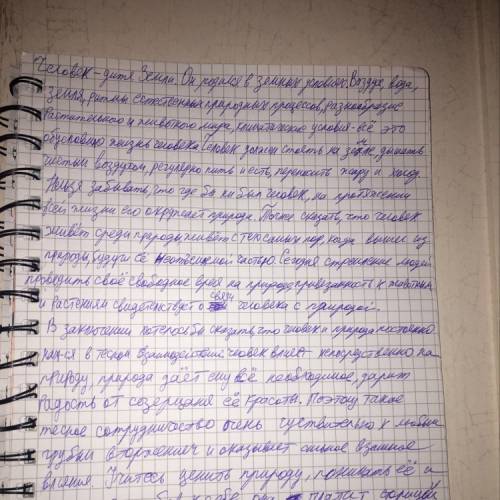 Человек - дитя Земли. Он родился в земных условиях. Воздух, вода,
земля, ритмы естественных природных процессов, разнообразие
растительного и животного мира, климатические условия - всё это
обусловило жизнь человека. Человек должен стоять на земле, дышать
чистым воздухом, регулярно пить и есть, переносить жару и холод.
Нельзя забывать, что где бы ни был человек, на протяжении
всей жизни его окружает природа. Можно сказать, что человек
живёт среди природы живёт с тех самых пор, когда вышел из
природы, будучи её неотъемлемой частью. Сегодня стремление людей
проводить своё свободное время на природе, привязанность к животным
и растениям свидетельствует о связи человека с природой.
В заключении хотелось бы сказать, что человек и природа постоянно
нах-ся в тесном взаимодействии. Человек влияет непосредственно на
природу, природа даёт ему всё необходимое, дарит
радость от созерцания её красоты. Поэтому такое
тесное сотрудничество очень чуствительно к любым
грубым вторжениям и оказывает сильное взаимное
влияния Учитесь ценить природу, понимать её и
она платит